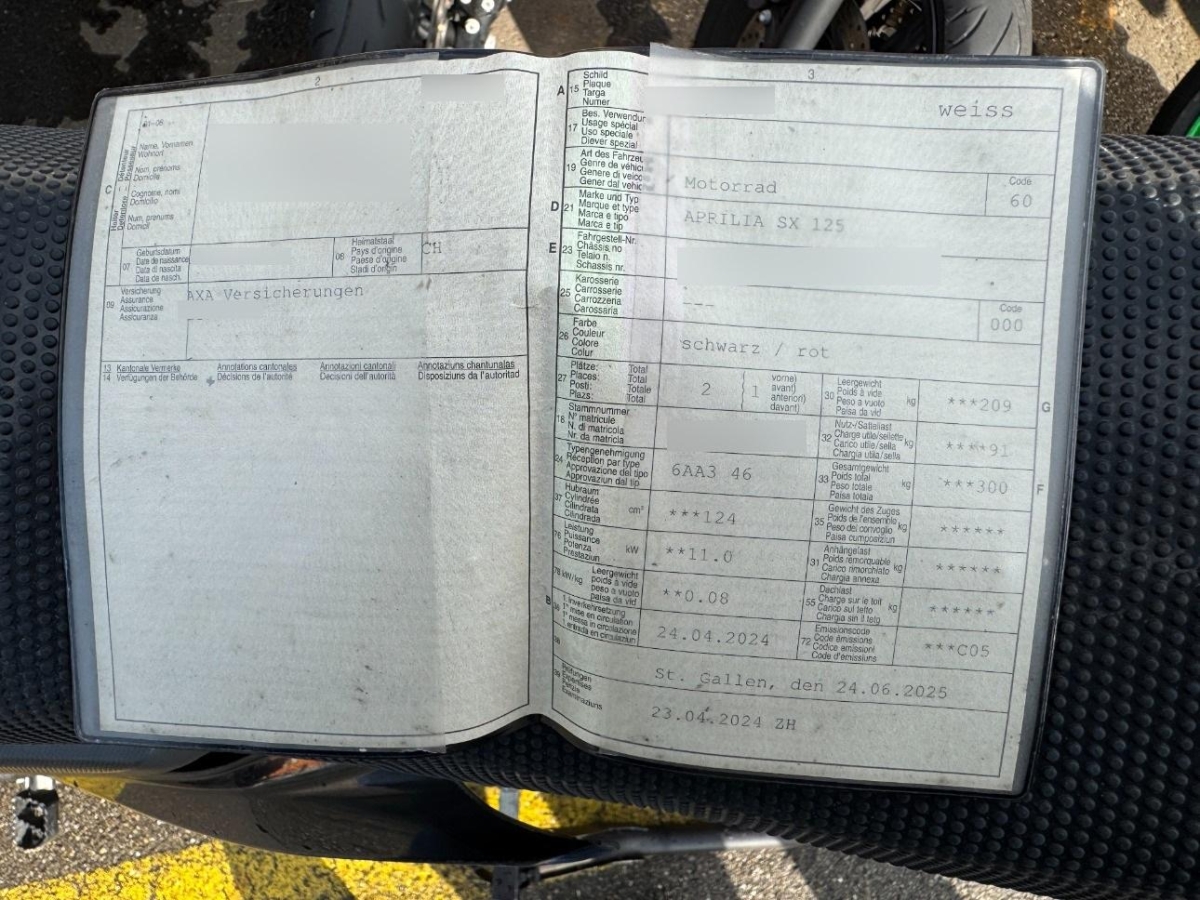 2
01-06
C
Halter
Détenteur
Detentore
Possessur
Name, Vornamen
Wohnort
Nom, prénoms
Domicile
Cognome, nomi
Domicilio
Num, prenums
Domicil
07
Geburtsdatum
Date de naissance
Data di nascita
Data da nasch.
08
Heimatstaat
Pays d'origine
Paese d'origine
Stadi d'origin
CH
09
Versicherung
Assurance
Assicurazione
Assicuranza
AXA Versicherungen
13 Kantonale Vermerke Annotations cantonales Annotazioni cantonali Annotaziuns chantunalas
14 Verfügungen der Behörde Décisions de l'autorité Decisioni dell'autorità Disposiziuns da l'autoritad
3
A 15
Schild
Plaque
Targa
Numer
weiss
17
Bes. Verwendun
Usage spécial
Uso speciale
Diever spezial
19
Art des Fahrzeu
Genre de véhic
Genere di veico
Gener dal vehic
Motorrad
Code
60
D 21
Marke und Typ
Marque et type
Marca e tipo
Marca e tip
APRILIA SX 125
E 23
Fahrgestell-Nr.
Châssis no
Telaio n.
Schassis nr.
25
Karosserie
Carrosserie
Carrozzeria
Carossaria
---
Code
000
26
Farbe
Couleur
Colore
Colur
schwarz / rot
27
Plätze: Total
Places: Total
Posti: Totale
Plazs: Total
2
1
vorne)
avant)
anteriori)
davant)
30
Leergewicht
Poids à vide
Peso a vuoto
Paisa da vid
kg
***209
G
18
Stammnummer
N° matricule
N. di matricola
Nr. da matricla
32
Nutz-/Sattellast
Charge utile/sellette
Carico utile/sella
Chargia utila/sella
kg
****91
24
Typengenehmigung
Réception par type
Approvazione del tipo
Approvaziun dal tip
6AA3 46
33
Gesamtgewicht
Poids total
Peso totale
Paisa totala
kg
***300
F
37
Hubraum
Cylindrée
Cilindrata
Cilindrada
cm³
***124
35
Gewicht des Zuges
Poids de l'ensemble
Peso del convoglio
Paisa cumposiziun
kg
******
76
Leistung
Puissance
Potenza
Prestaziun
kW
**11.0
31
Anhängelast
Poids remorquable
Carico rimorchiato
Chargia annexa
kg
******
78 kW/kg
Leergewicht
poids à vide
peso a vuoto
paisa da vid
**0.08
55
Dachlast
Charge sur le toit
Carico sul tetto
Chargia sin il tetg
kg
******
B 36
1. Inverkehrsetzung
1re mise en circulation
1a messa in circolazione
1. entrada en circulaziun
24.04.2024
72
Emissionscode
Code émissions
Codice emissioni
Code d'emissiuns
***C05
38
St. Gallen, den 24.06.2025
39
Prüfungen
Expertises
Perizie
Examinaziuns
23.04.2024 ZH